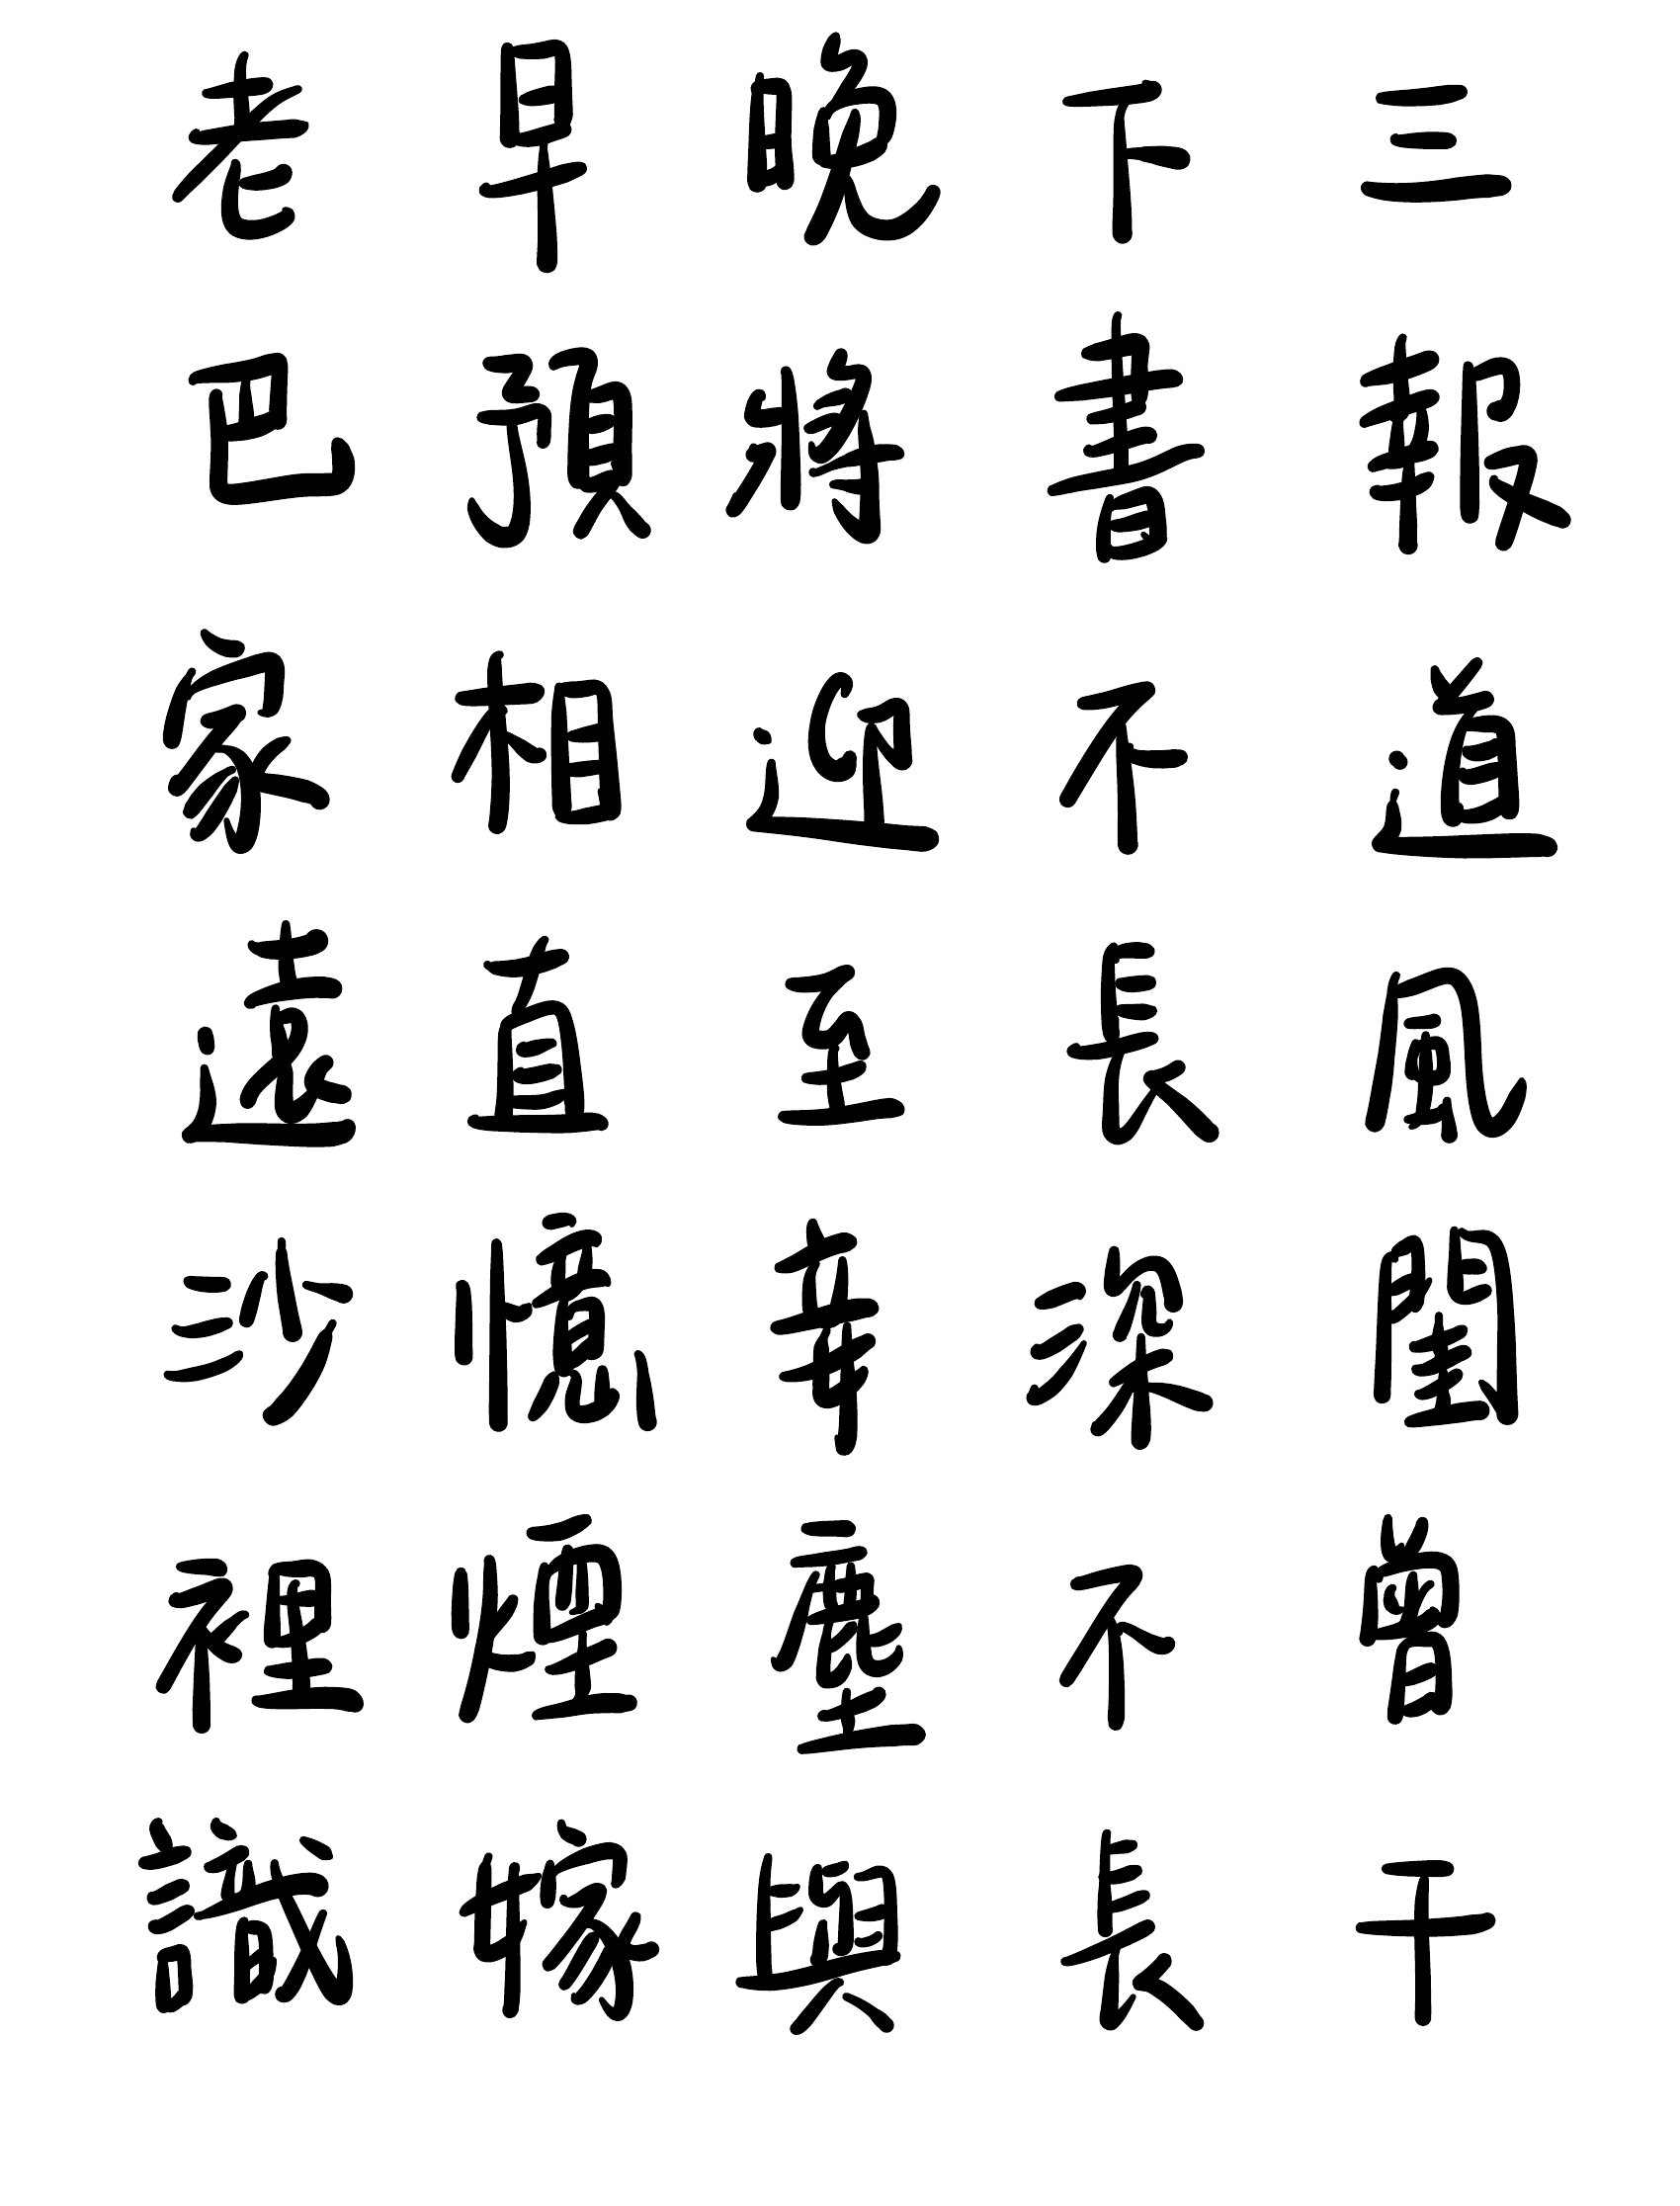 老早晚下三
巴預將書報
家相迎不道
遠直至長風
沙憶幸深閨
裡煙塵不曾
識嫁與長干